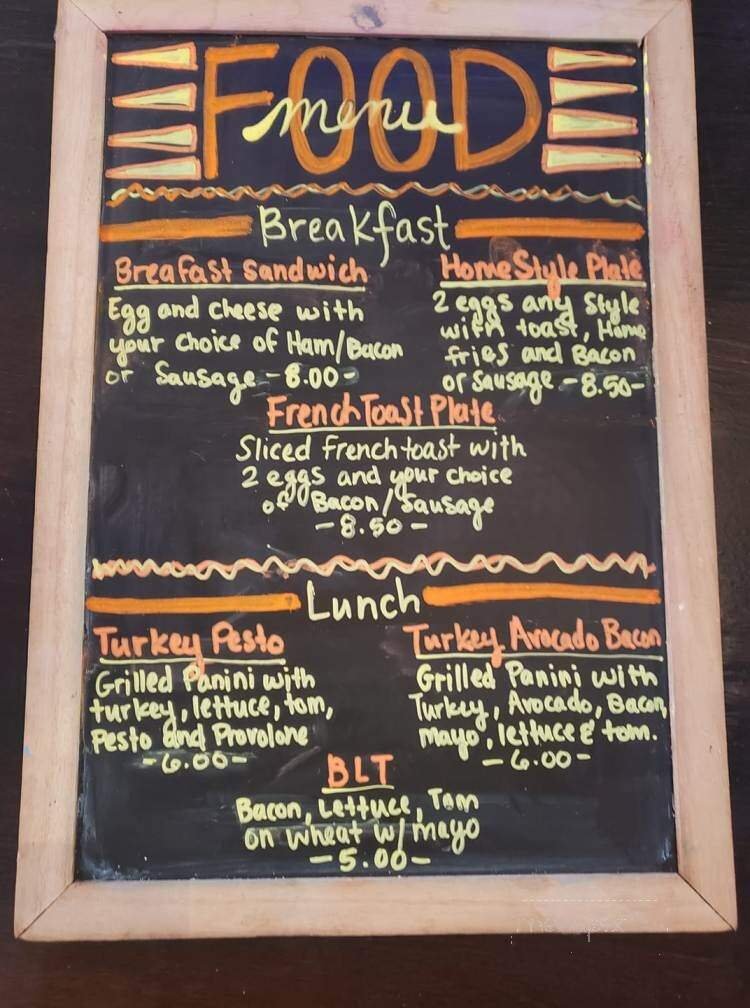 FOOD
menu
Breakfast
Breafast Sandwich
Egg and cheese with
your choice of Ham/Bacon
or Sausage -8.00-
HomeStyle Plate
2 eggs any Style
with toast, Home
fries and Bacon
or Sausage -8.50-
French Toast Plate
Sliced french toast with
2 eggs and your choice
of Bacon/Sausage
-8.50-
Lunch
Turkey Pesto
Grilled Panini with
turkey, lettuce, tom,
Pesto and Provolone
-6.00-
Turkey Avocado Bacon
Grilled Panini with
Turkey, Avocado, Bacon,
mayo, lettuce & tom.
-6.00-
BLT
Bacon, Lettuce, Tom
on wheat w/ mayo
-5.00-